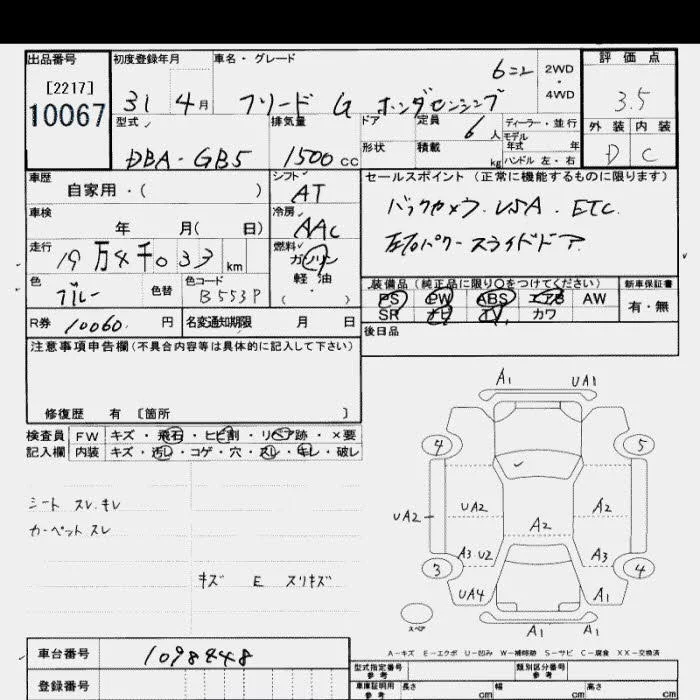 出品番号 初度登録年月 車名・グレード 評価点
[2217] 10067 31 4月 フリード G ホンダセンシング 6ニン 2WD・4WD 3.5
型式 排気量 ドア 定員 6人 ディーラー・並行 外装 内装
DBA-GB5 1500cc 形状 積載 kg モデル年式 年 ハンドル 左・右 D C
車歴 自家用・( ) シフト AT セールスポイント(正常に機能するものに限ります)
車検 年 月( 日) 冷房 AAC バックカメラ. USA. ETC.
走行 19万4千033km 燃料 ガソリン・軽油 ( ) 左右パワースライドドア
色 ブルー 色替 色コード B553P 装備品(純正品に限り○をつけてください) 新車保証書
PS PW ABS エアB AW 有・無
R券 10060. 円 名変通知期限 月 日 SR ナビ TV カワ
後日品
注意事項申告欄(不具合内容等は具体的に記入して下さい)
修復歴 有 [箇所 ]
検査員 FW キズ・飛石・ヒビ割・リペア跡・×要
記入欄 内装 キズ・汚レ・コゲ・穴・スレ・キレ・破レ
シート スレ.キレ
カーペット スレ
キズ E スリキズ
A1 UA1
4 5
UA2 UA2 A2
A2
A3 U2 A3
3 4
UA4 A1
スペア A1 A1
A-キズ E-エクボ U-凹み W-補修跡 S-サビ C-腐食 XX-交換済
車台番号 1098848 型式指定番号 参考 類別区分番号 参考
登録番号 車庫証明用 参考 長さ cm 幅 cm 高さ cm